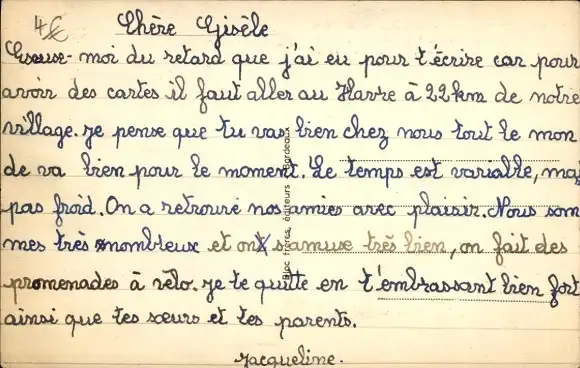 4€ Chère Gisèle
Excuse-moi du retard que j'ai eu pour t'écrire car pour
avoir des cartes il faut aller au Havre à 22km de notre
village. Je pense que tu vas bien chez nous tout le mon
de va bien pour le moment. Le temps est variable, mais
pas froid. On a retrouvé nos amies avec plaisir. Nous som
mes très nombreux et on s'amuse très bien, on fait des
promenades à vélo. Je te quitte en t'embrassant bien fort
ainsi que tes sœurs et tes parents.
Jacqueline.
Bloc frères, éditeurs Bordeaux